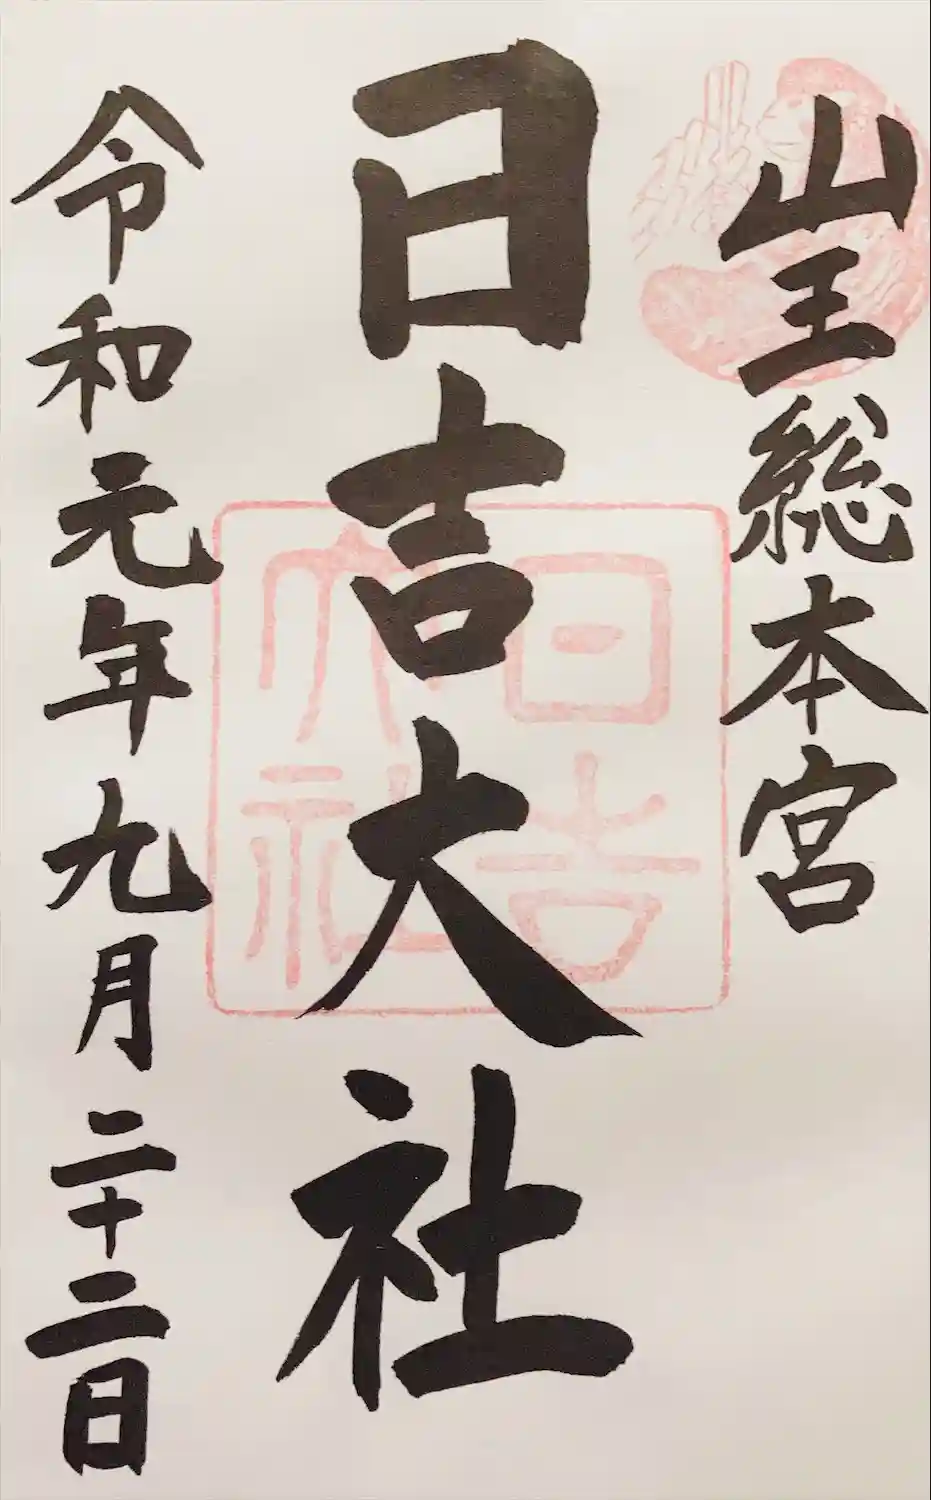 山王総本宮
日吉大社
日吉大社
令和元年九月二十二日